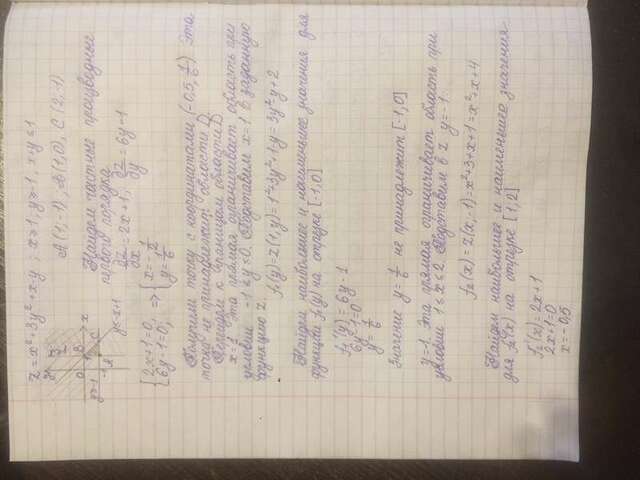 z = x² + 3y² + x - y ; x ≥ 1; y ≥ -1, x + y ≤ 1
A(1,-1); B(1,0), C(2,-1)
y
0 1 B x
y ≥ -1 -1 A C
y ≤ -x+1
Найдем частные производные
первого порядка
∂z/∂x = 2x+1; ∂z/∂y = 6y-1
{2x+1=0, 6y-1=0; ⇒ {x=-1/2 y=1/6
Получили точку с координатами (-0,5, 1/6). Эта
точка не принадлежит области D.
Перейдем к границам области D
x=1. Эта прямая ограничивает область при
условии -1 ≤ y ≤ 0. Подставим x=1 в заданную
функцию z.
f₁(y) = z(1, y) = 1²+3y²+1-y = 3y²-y+2
Найдем наибольшее и наименьшее значения для
функции f₁(y) на отрезке [-1,0]
f₁'(y) = 6y-1
6y-1=0
y = 1/6
Значение y = 1/6 не принадлежит [-1,0]
y=-1. Эта прямая ограничивает область при
условии 1 ≤ x ≤ 2. Подставим в z y=-1.
f₂(x) = z(x,-1) = x²+3+x+1 = x²+x+4
Найдем наибольшее и наименьшее значения
для f₂(x) на отрезке [1,2]
f₂'(x) = 2x+1
2x+1=0
x=-0,5